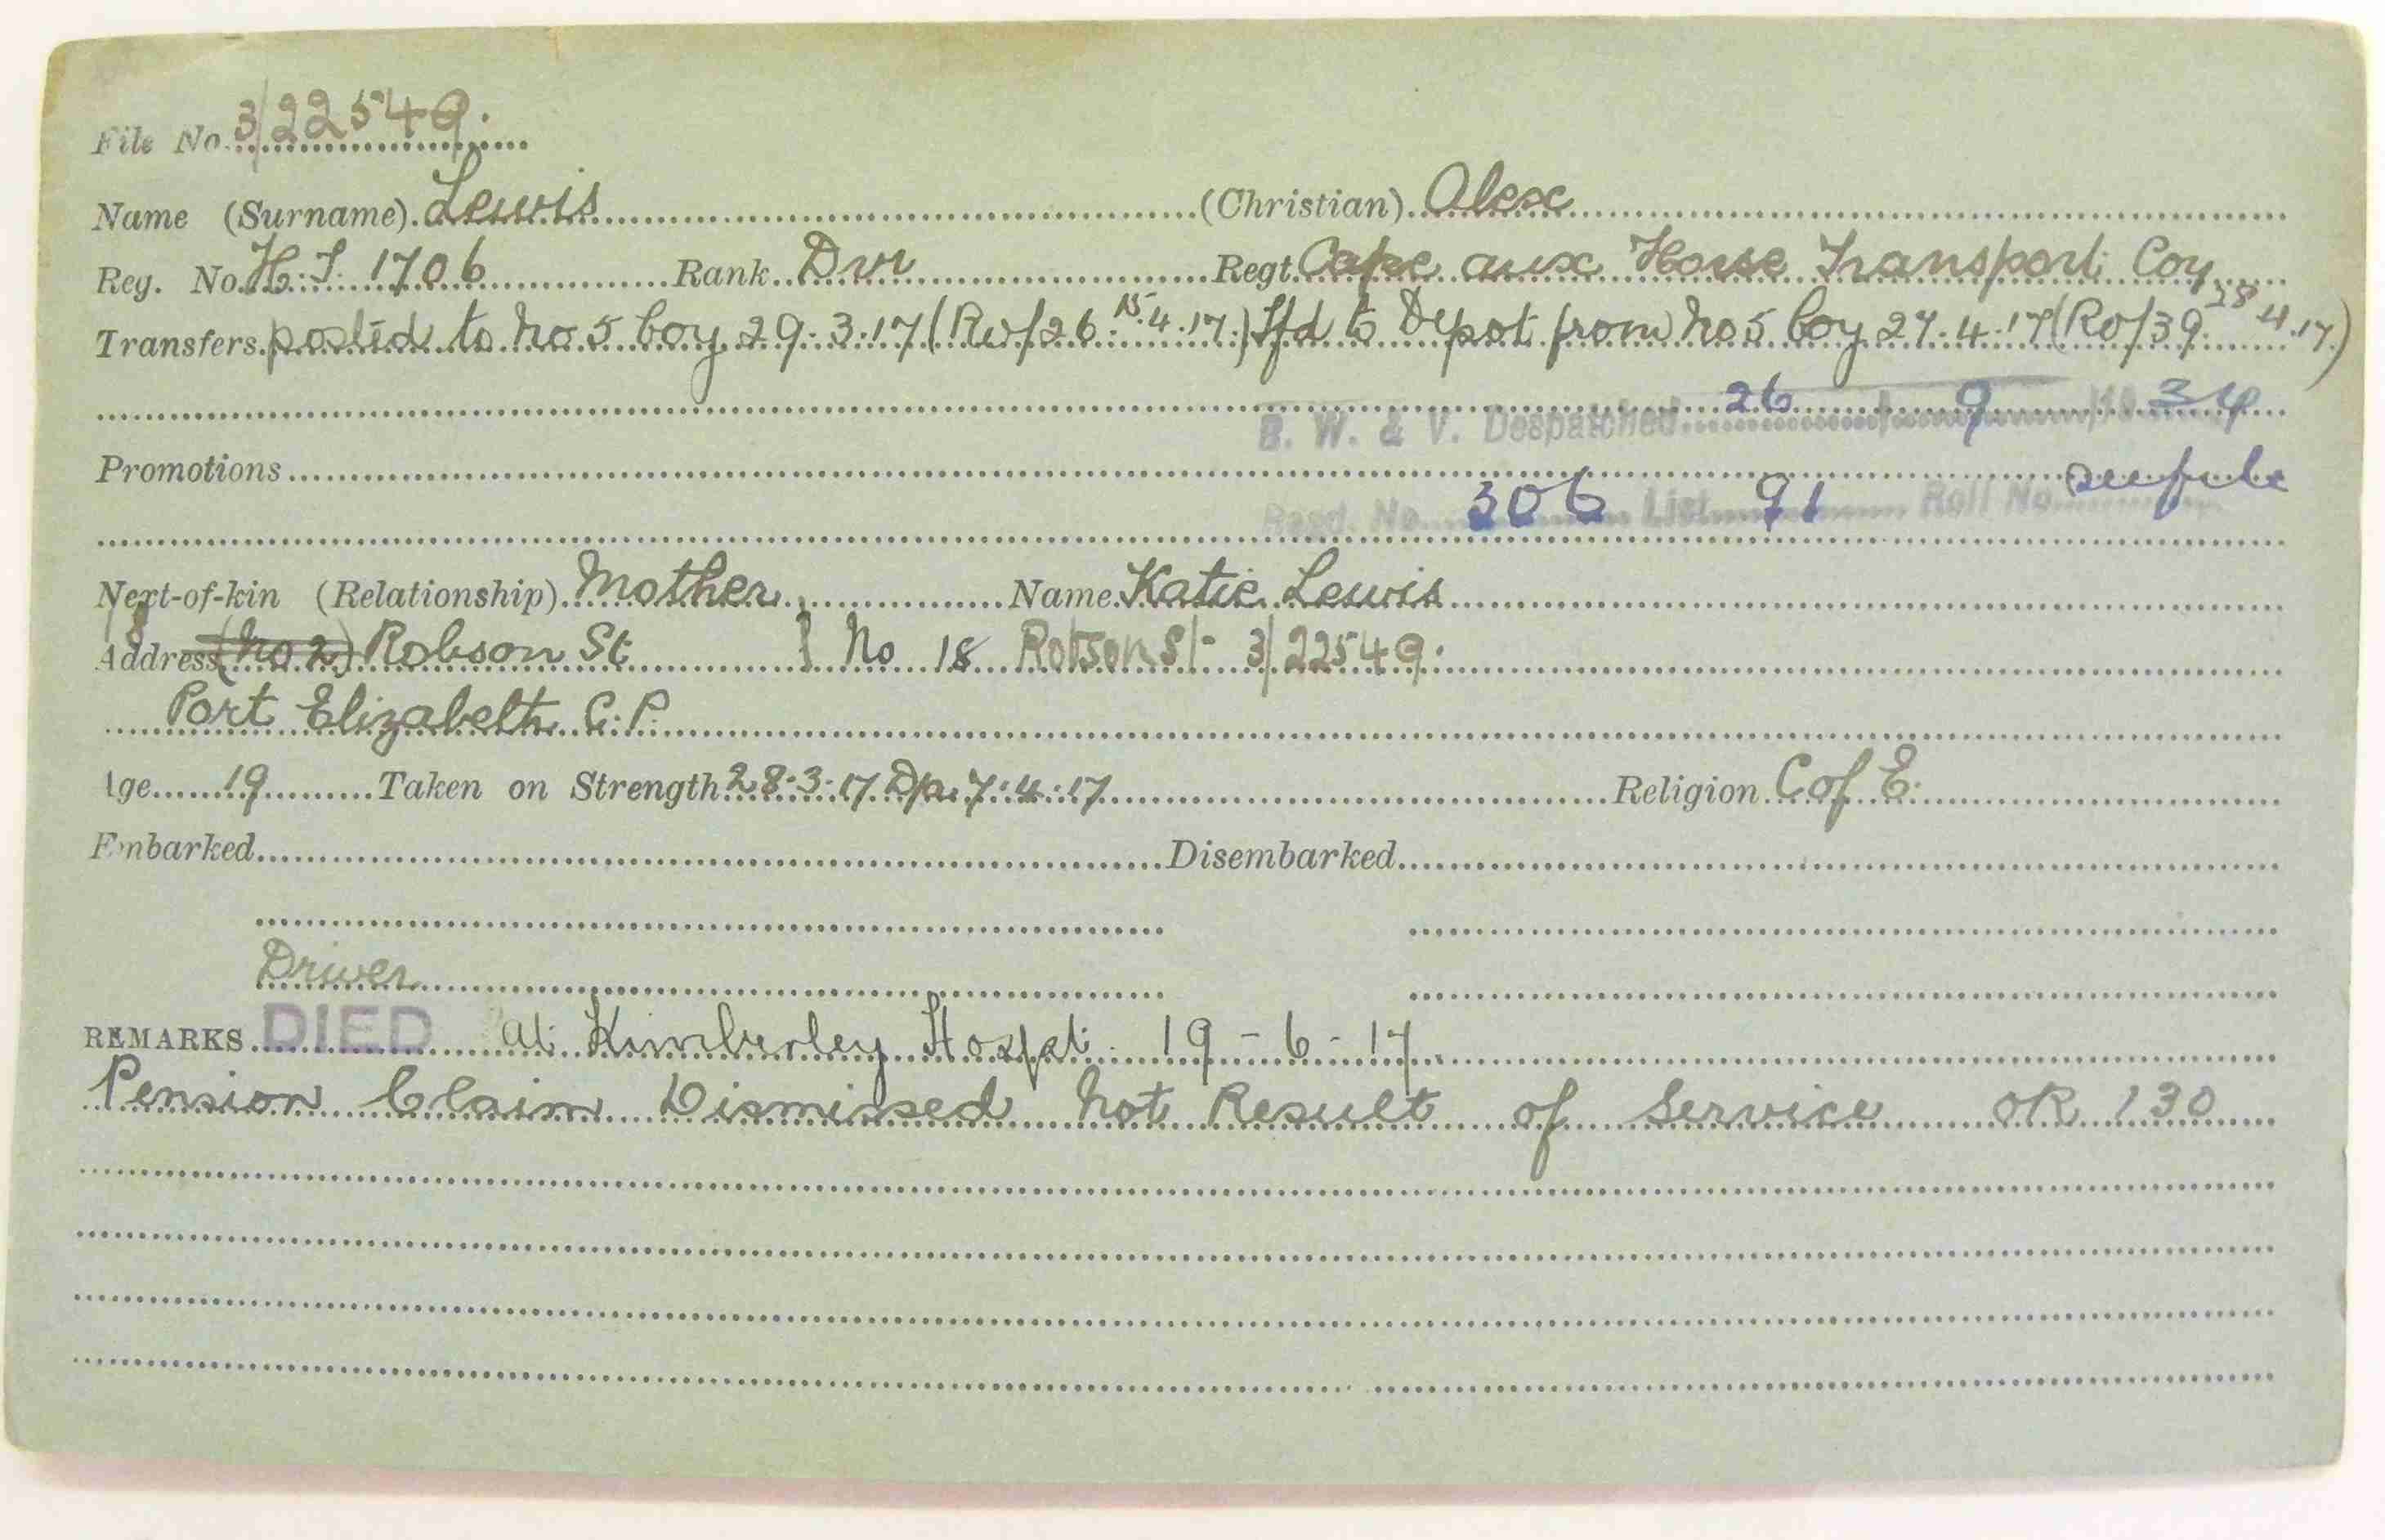 File No. 3/22549.
Name (Surname) Lewis (Christian) Alex
Reg. No. H.T. 1706 Rank Dvr Regt. Cape aux Horse Transport Coy
Transfers posted to No 5 Coy 29.3.17 (Ro/26 15.4.17.) Tfd to Depot from No 5 Coy 27.4.17 (Ro/39 28 4.17.)
B. W. & V. Despatched 26 / 9 /19 34
Promotions see file
Regd. No. 306 List 91 Roll No.
Next-of-kin (Relationship) Mother Name Katie Lewis
18
Address (No 2) Robson St } No 18 Robson St 3/22549.
Port Elizabeth C.P.
Age 19 Taken on Strength 28.3.17 D/o. 7.4.17 Religion C of E.
Embarked Disembarked
Driver
REMARKS DIED at Kimberley Hospt. 19-6-17
Pension Claim Dismissed Not Result of Service OR 130